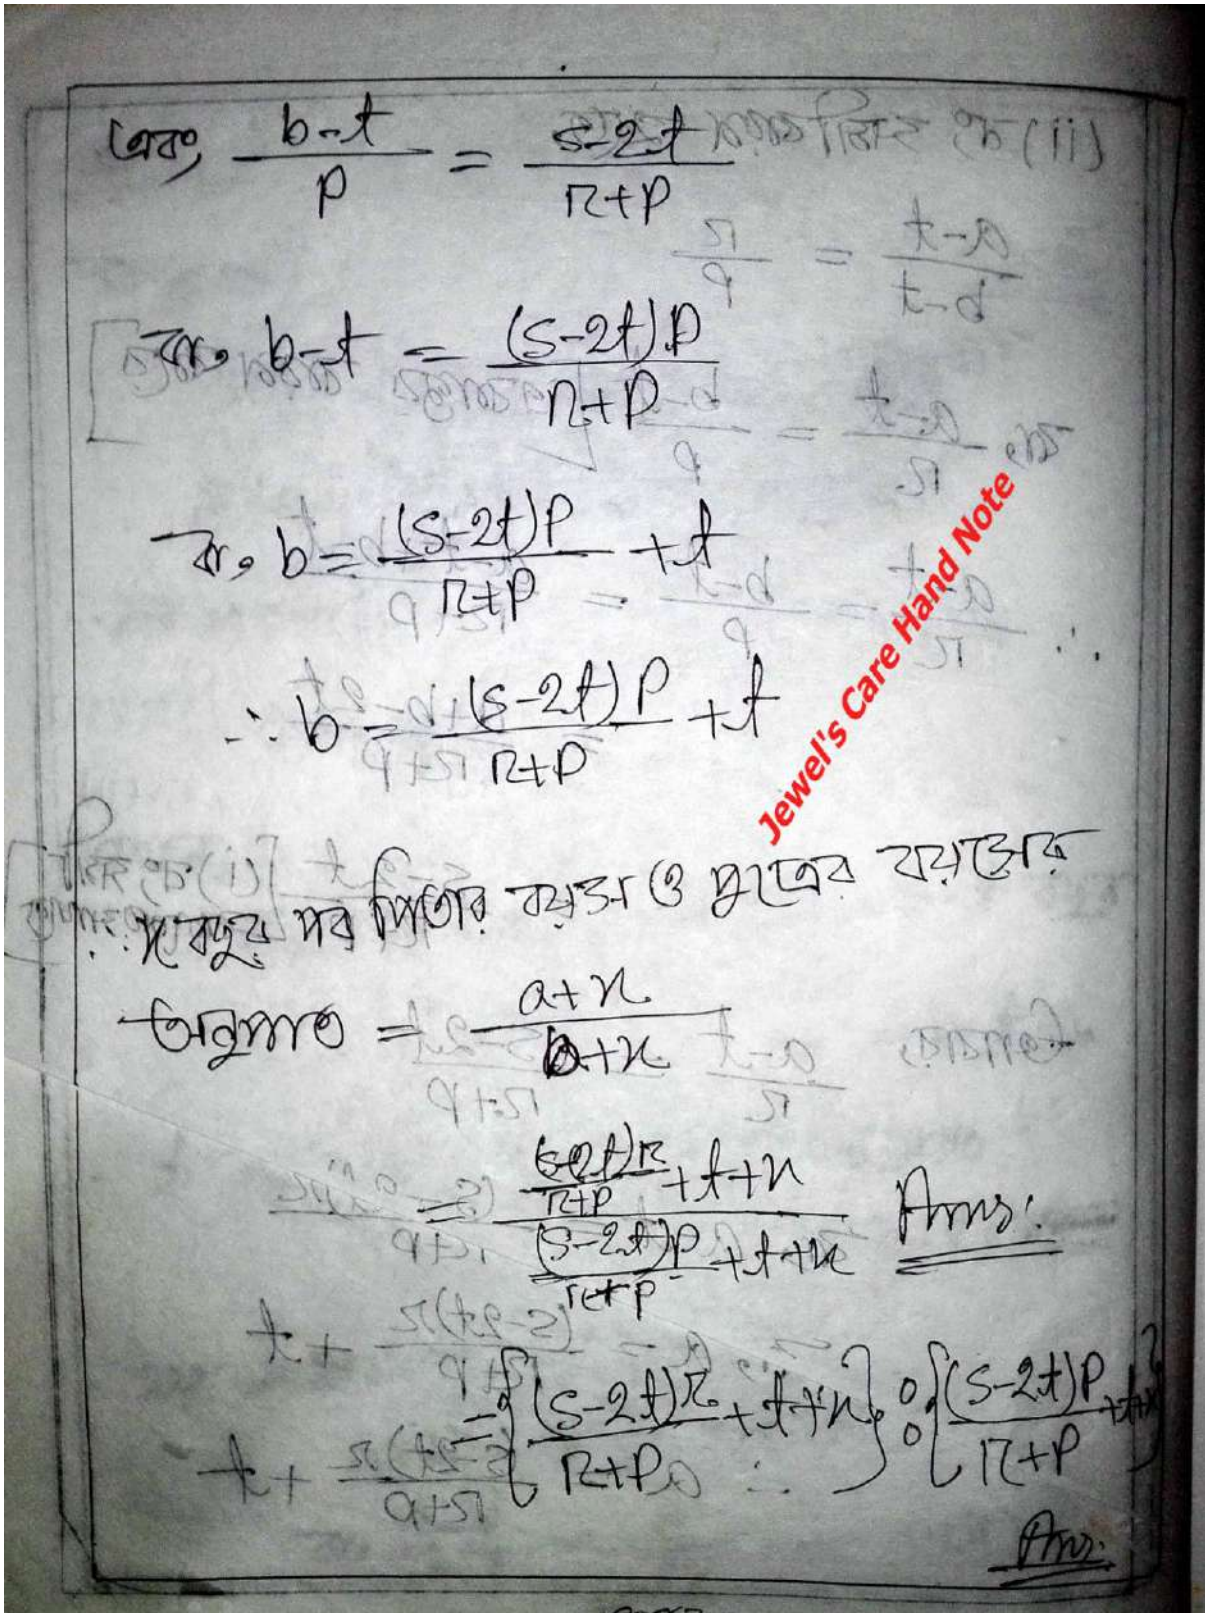 এবং, (b-t)/p = (s-2t)/(r+p)
বা, b-t = (s-2t).p/(r+p)
বা, b = (s-2t)p/(r+p) + t
∴ b = (s-2t)p/(r+p) + t
Jewel's Care Hand Note
x বছর পর পিতার বয়স ও পুত্রের বয়সের
অনুপাত = (a+x)/(b+x)
= ((s-2t)r/(r+p) + t+x)/((s-2t)p/(r+p) + t+x) Ans:
= {(s-2t)r/(r+p) + t+x} : {(s-2t)p/(r+p) + t+x}
Ans.